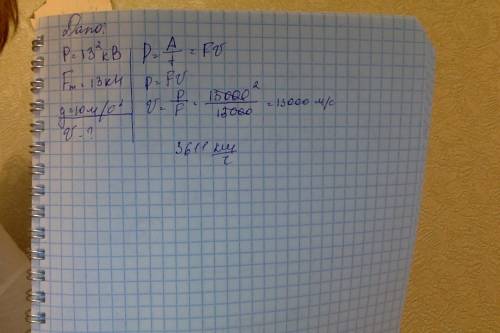 Дано:
P = 13² кВ
Fт = 13 кН
g = 10 м/с²
v - ?
P = A/t = Fv
P = Fv
v = P/F = 13000²/13000 = 13000 м/с
3611 км/г